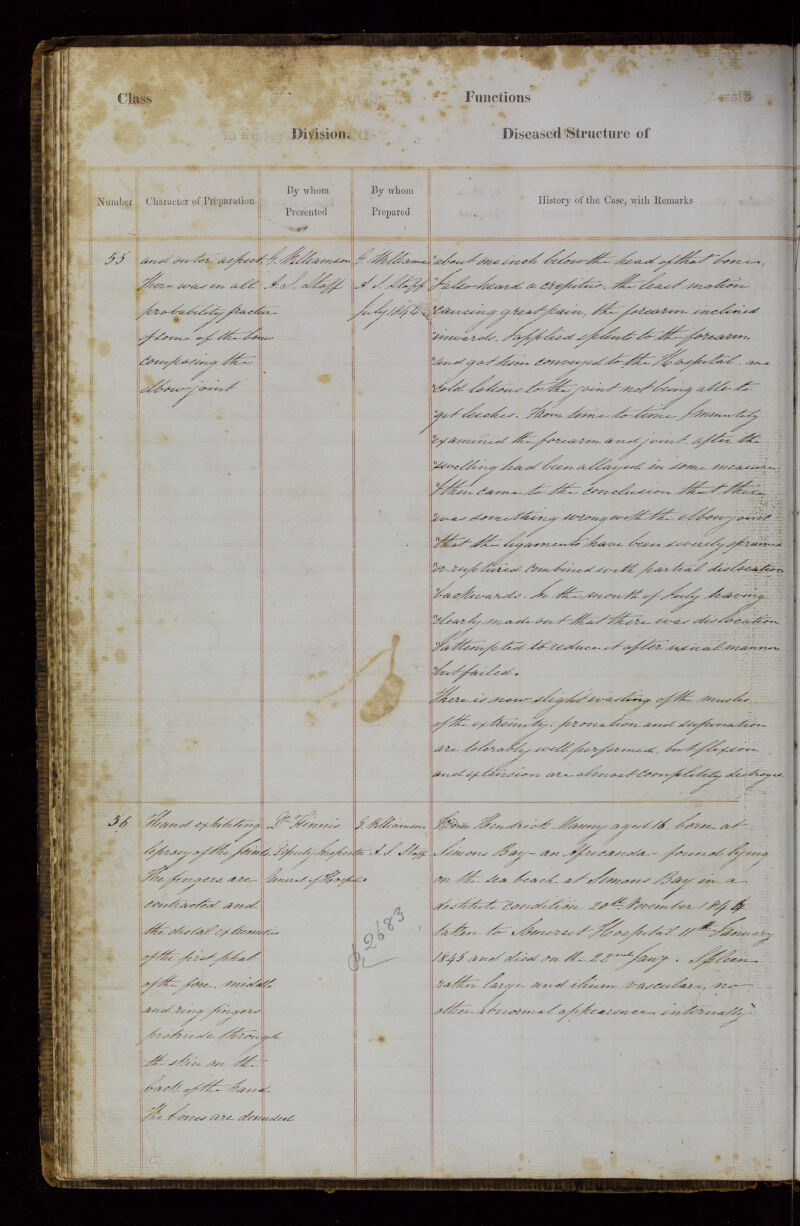 Class Functions
Division. Diseased Structure of
Number Character of Preparation By whom Presented By whom Prepared History of the Case, with Remarks
55
and outer aspect.
There was in all
probability fracture
of some of the bones
composing the
elbow joint
G. Williamson
A. S. Staff
G. Williamson
A S. Staff
July 1846
"about one inch below the head of that bone,
"I also heard a crepitus, the least motion
"causing great pain, the forearm inclined
"inwards, I applied splints to the forearm
"and got him conveyed to the Hospital. and
"cold lotions to the joint not being able to
"get leeches. From time to time I minutely
"examined the forearm and joint after the
"swelling had been allayed in some measure
"I then came to the conclusion that there
"was something wrong with the elbow joint
"that the ligaments have been severely sprained
"or ruptured combined with partial dislocation
"backwards. In the month of July having
"clearly made out that there was dislocation
"I attempted to reduce it after usual manner
"but failed.
There is now slight wasting of the muscles
of the extremity: pronation and supination
are tolerably well performed, but flexion
and extension are almost completely destroyed
36
Hand exhibiting
leprosy of the joints
The fingers are
contracted and
the distal extremities
of the first phal
of the fore, middle
and ring fingers
protrude through
the skin on the
back of the hand
The bones are denuded
Dr. Kinnis
Deputy Inspector
General of Hospitals
G. Williamson
A. S. Staff
2683
From Hendrick Manny aged 16 born at
Simons Bay - an Africanda - found lying
on the sea beach at Simons Bay in a
destitute condition 20th November 1844
taken to Somerset Hospital 11th January
1845 and died on the 22nd Jany. Spleen
rather large and ilium vascular, no
other abnormal appearance internally.